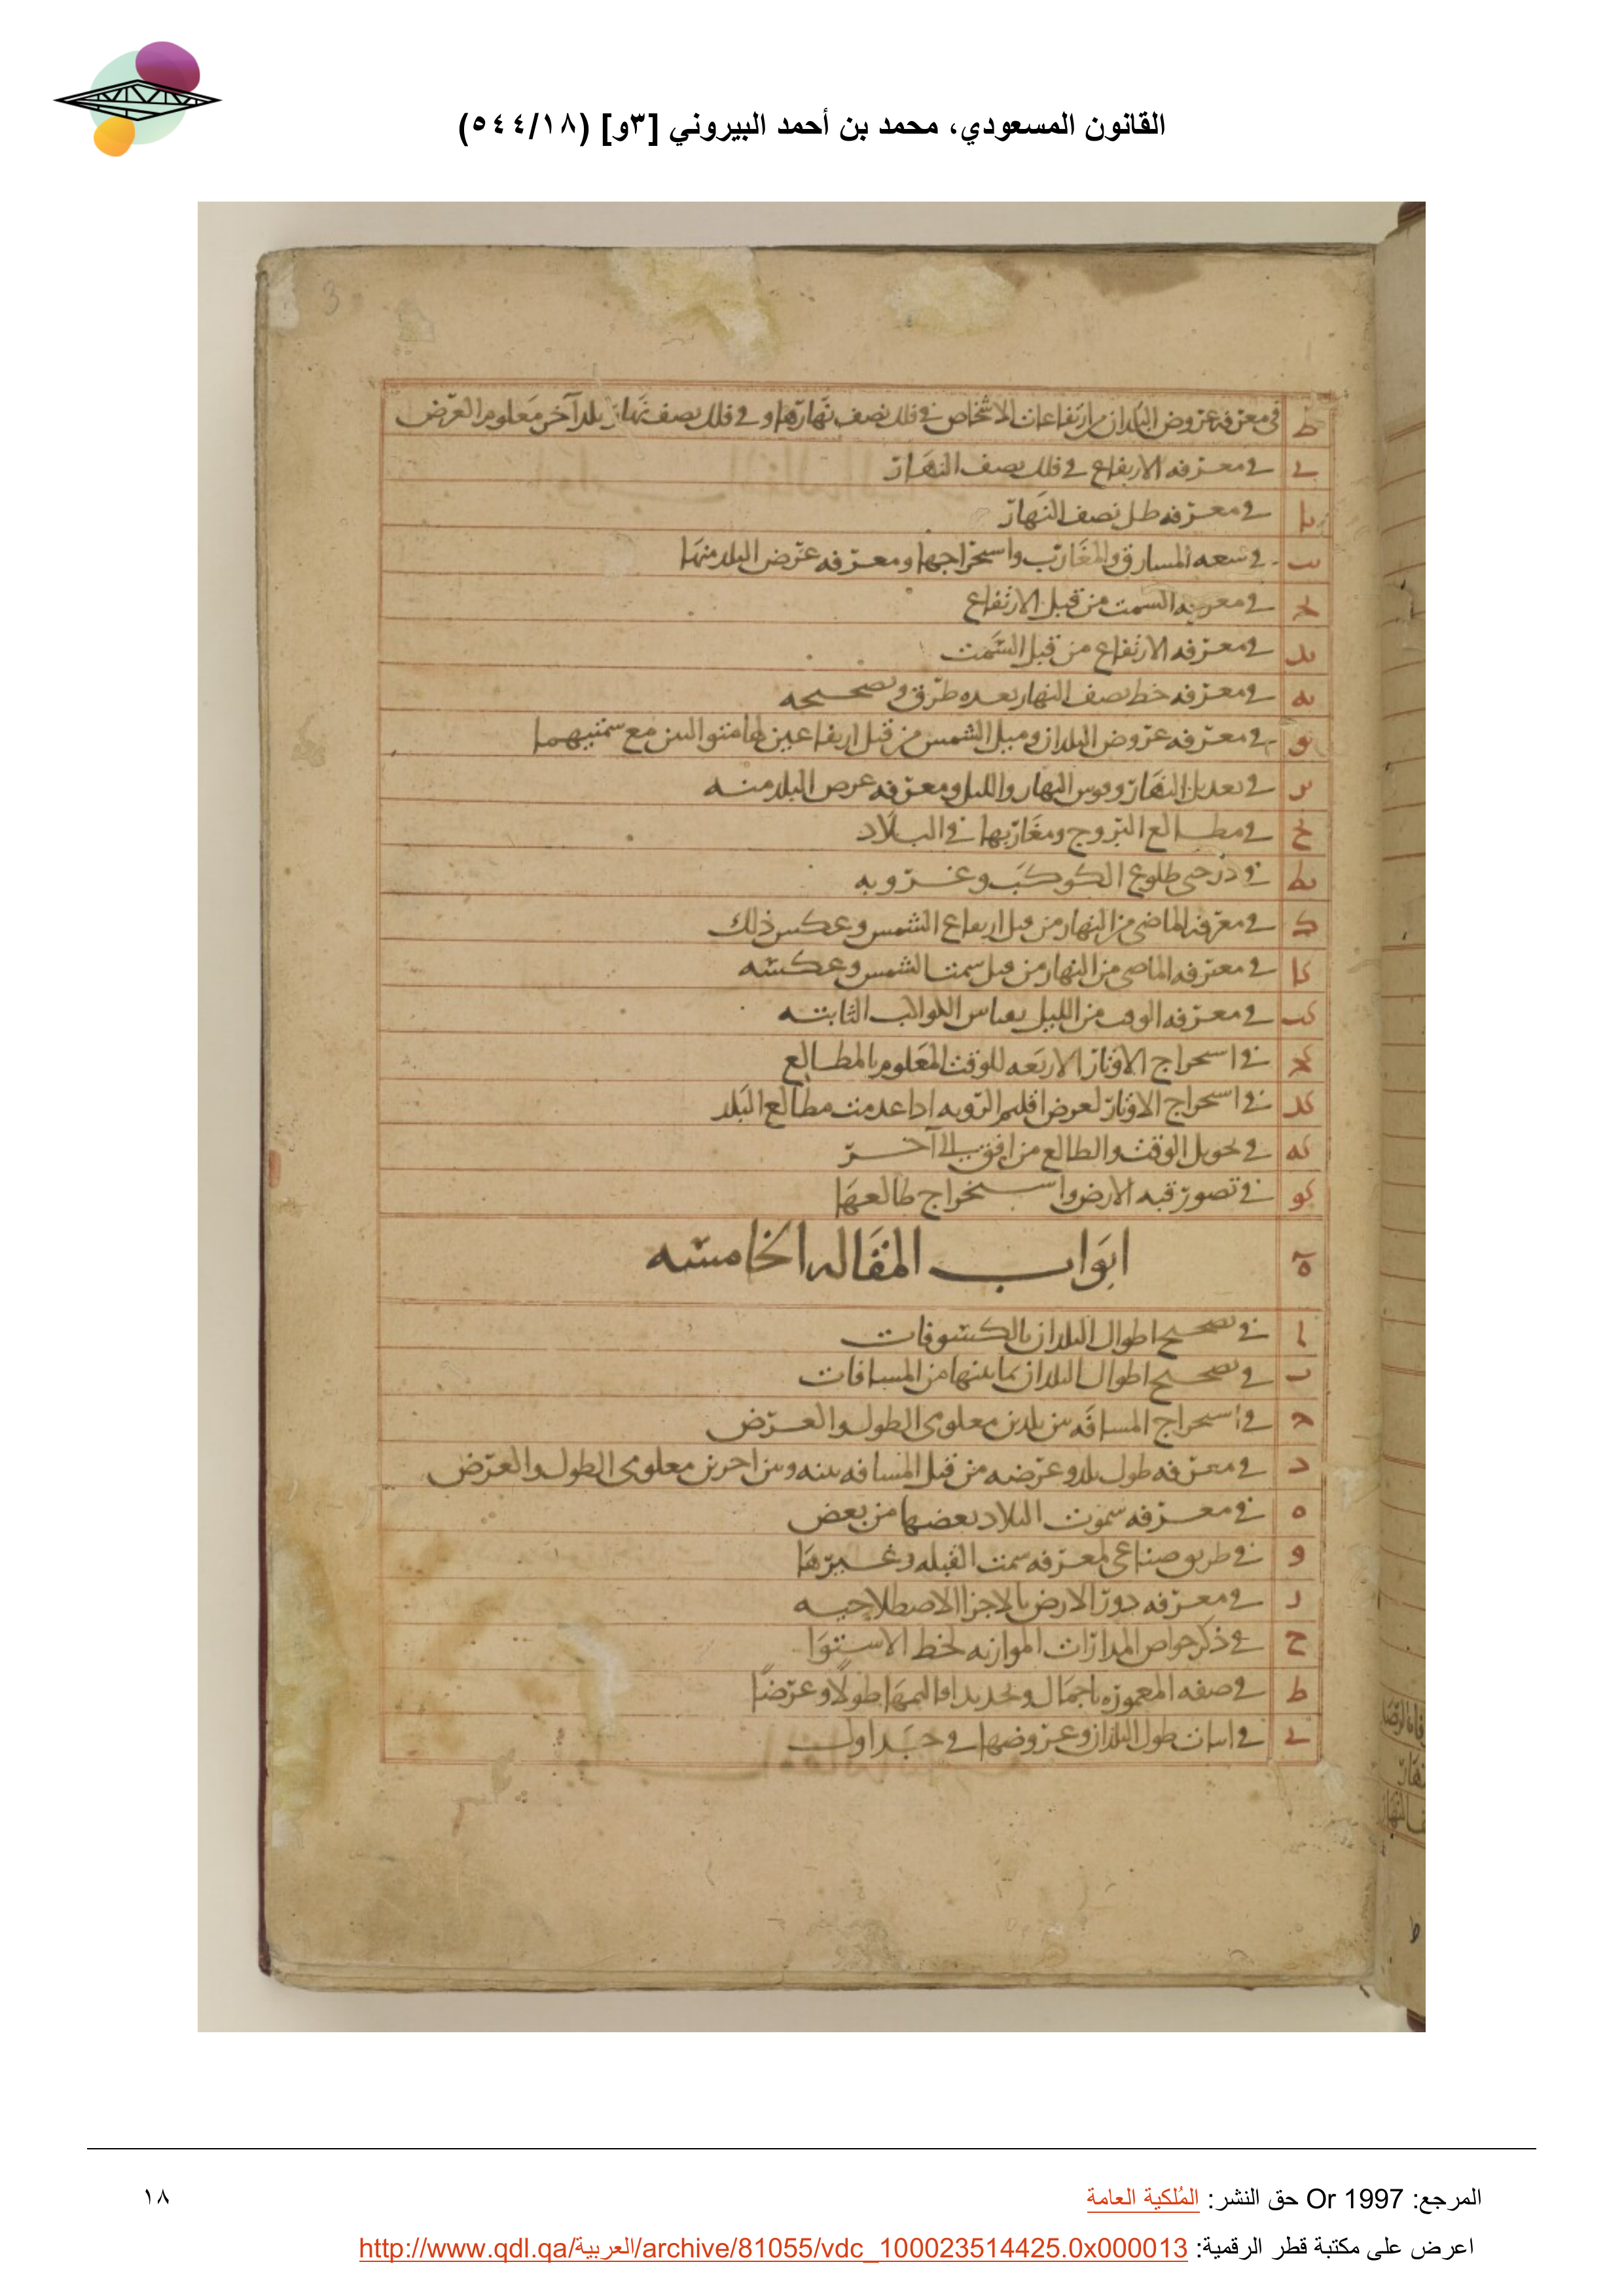 القانون المسعودي، محمد بن أحمد البيروني [٣و] (٥٤٤/١٨)
3
ط في معرفه عروض البلدان من ارتفاعات الاشخاص في فلك نصف نهارها و في فلك نصف نهار بلد آخر معلوم العرض
ي في معرفه الارتفاع في فلك نصف النهار
يا في معرفه ظل نصف النهار
يب في سعه المشارق والمغارب واستخراجها ومعرفه عرض البلد منها
يج في معرفه السمت من قبل الارتفاع
يد في معرفه الارتفاع من قبل السمت
يه في معرفه خط نصف النهار بعده طرق وتصحيحه
يو في معرفه عروض البلدان وميل الشمس من قبل ارتفاعين لها متواليين مع سمتيهما
يز في تعديل النهار وقوس النهار والليل ومعرفه عرض البلد منه
يح في مطالع البروج ومغاربها في البلاد
يط في درجتي طلوع الكوكب وغروبه
ك في معرفه الماضي من النهار من قبل ارتفاع الشمس وعكس ذلك
كا في معرفه الماضي من النهار من قبل سمت الشمس وعكسه
كب في معرفه الوقت من الليل بقياس الكواكب الثابته
كج في استخراج الاوتاد الاربعه للوقت المعلوم بالمطالع
كد في استخراج الاوتاد لعرض اقليم الرويه اذا عدمت مطالع البلد
كه في تحويل الوقت والطالع من افق الى آخر
كو في تصور قبه الارض واستخراج طالعها
ه ابواب المقاله الخامسه
ا في تصحيح اطوال البلدان بالكسوفات
ب في تصحيح اطوال البلدان بما بينها من المسافات
ج في استخراج المسافه بين بلدين معلومي الطول والعرض
د في معرفه طول بلد وعرضه من قبل المسافه بينه وبين اخرين معلومي الطول والعرض
ه في معرفه سموت البلاد بعضها من بعض
و في طريق صناعي لمعرفه سمت القبله وغيرها
ز في معرفه دور الارض بالاجزا الاصطلاحيه
ح في ذكر خواص المدارات الموازيه لخط الاستوا
ط في صفه المعموره باجمال وتحديد اقاليمها طولًا وعرضًا
ي في اثبات طول البلدان وعروضها في جداول
المرجع: Or 1997 حق النشر: المُلكية العامة
١٨
اعرض على مكتبة قطر الرقمية: http://www.qdl.qa/العربية/archive/81055/vdc_100023514425.0x000013